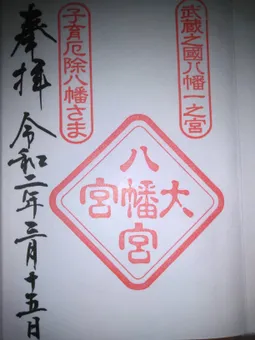 武蔵之國八幡一之宮
大
八幡宮
宮
子育厄除八幡さま
奉拝
令和二年三月十五日